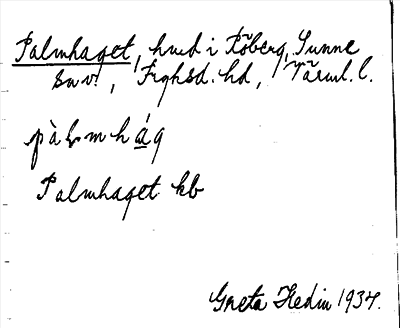 Palmhaget, hmd i Röberg, Sunne
sn v., Fryksd. hd, Värml. l.
pàlmhág
Palmhaget kb
Greta Hedin 1934.